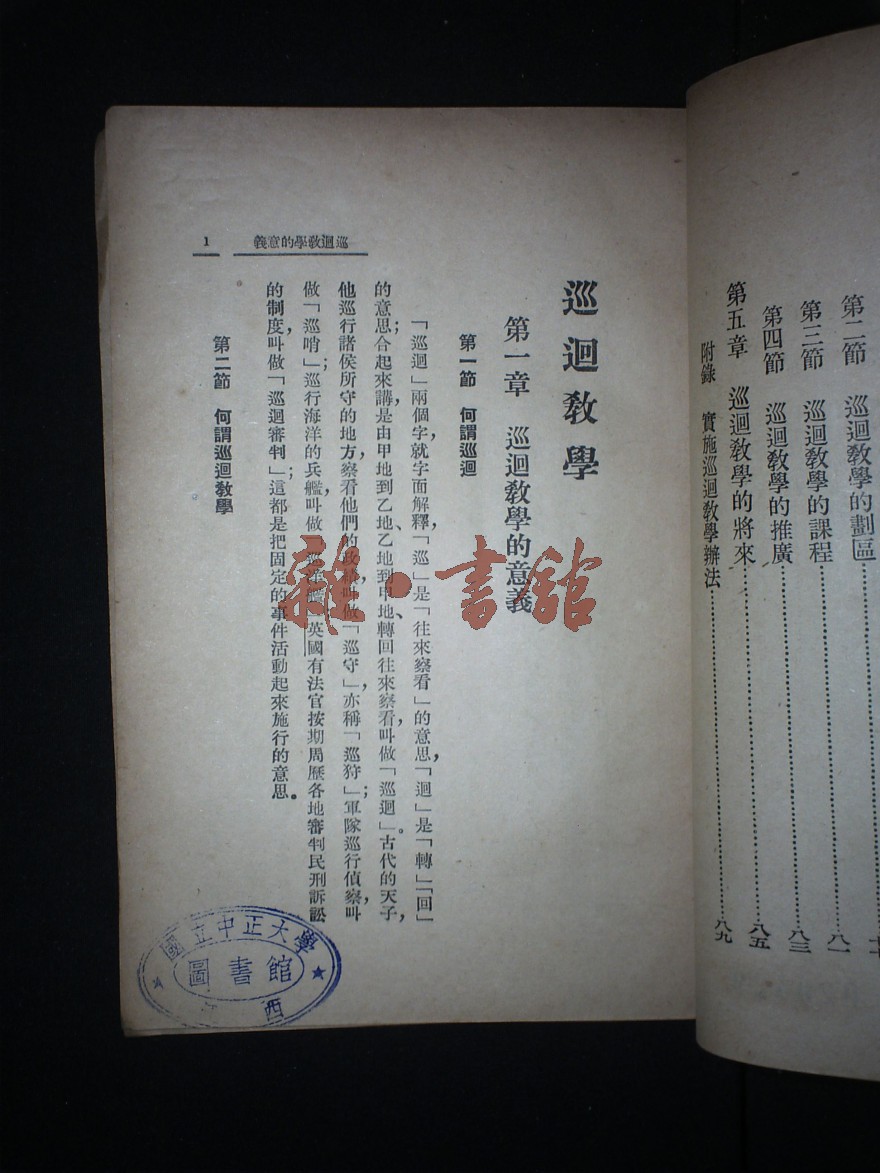 第二節　巡迴教學的劃區
第三節　巡迴教學的課程………八一
第四節　巡迴教學的推廣………八三
第五章　巡迴教學的將來………八五
附錄　實施巡迴教學辦法………八九
巡迴教學的意義　1
巡迴教學
第一章　巡迴教學的意義
第一節　何謂巡迴
「巡迴」兩個字，就字面解釋，「巡」是「往來察看」的意思，「迴」是「轉」「回」
的意思；合起來講，是由甲地到乙地、乙地到甲地、轉回往來察看，叫做「巡迴」。古代的天子，
他巡行諸侯所守的地方，察看他們的政績，叫做「巡守」，亦稱「巡狩」；軍隊巡行偵察，叫
做「巡哨」；巡行海洋的兵艦，叫做「巡洋艦」；英國有法官按期周歷各地審判民刑訴訟
的制度，叫做「巡迴審判」；這都是把固定的事件活動起來施行的意思。
第二節　何謂巡迴教學
國立中正大學
圖書館
西
雜·書館